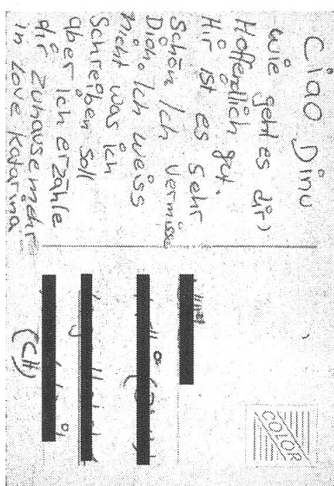 Ciao Dinu
wie geht es dir)
Hoffendlich gut.
Hir ist es sehr
Schön. Ich vermisse
Dich. Ich weiss
nicht was ich
Schreiben soll
aber ich erzähle
dir zuhause mehr
in Love Katarina
(CH)
COLOR